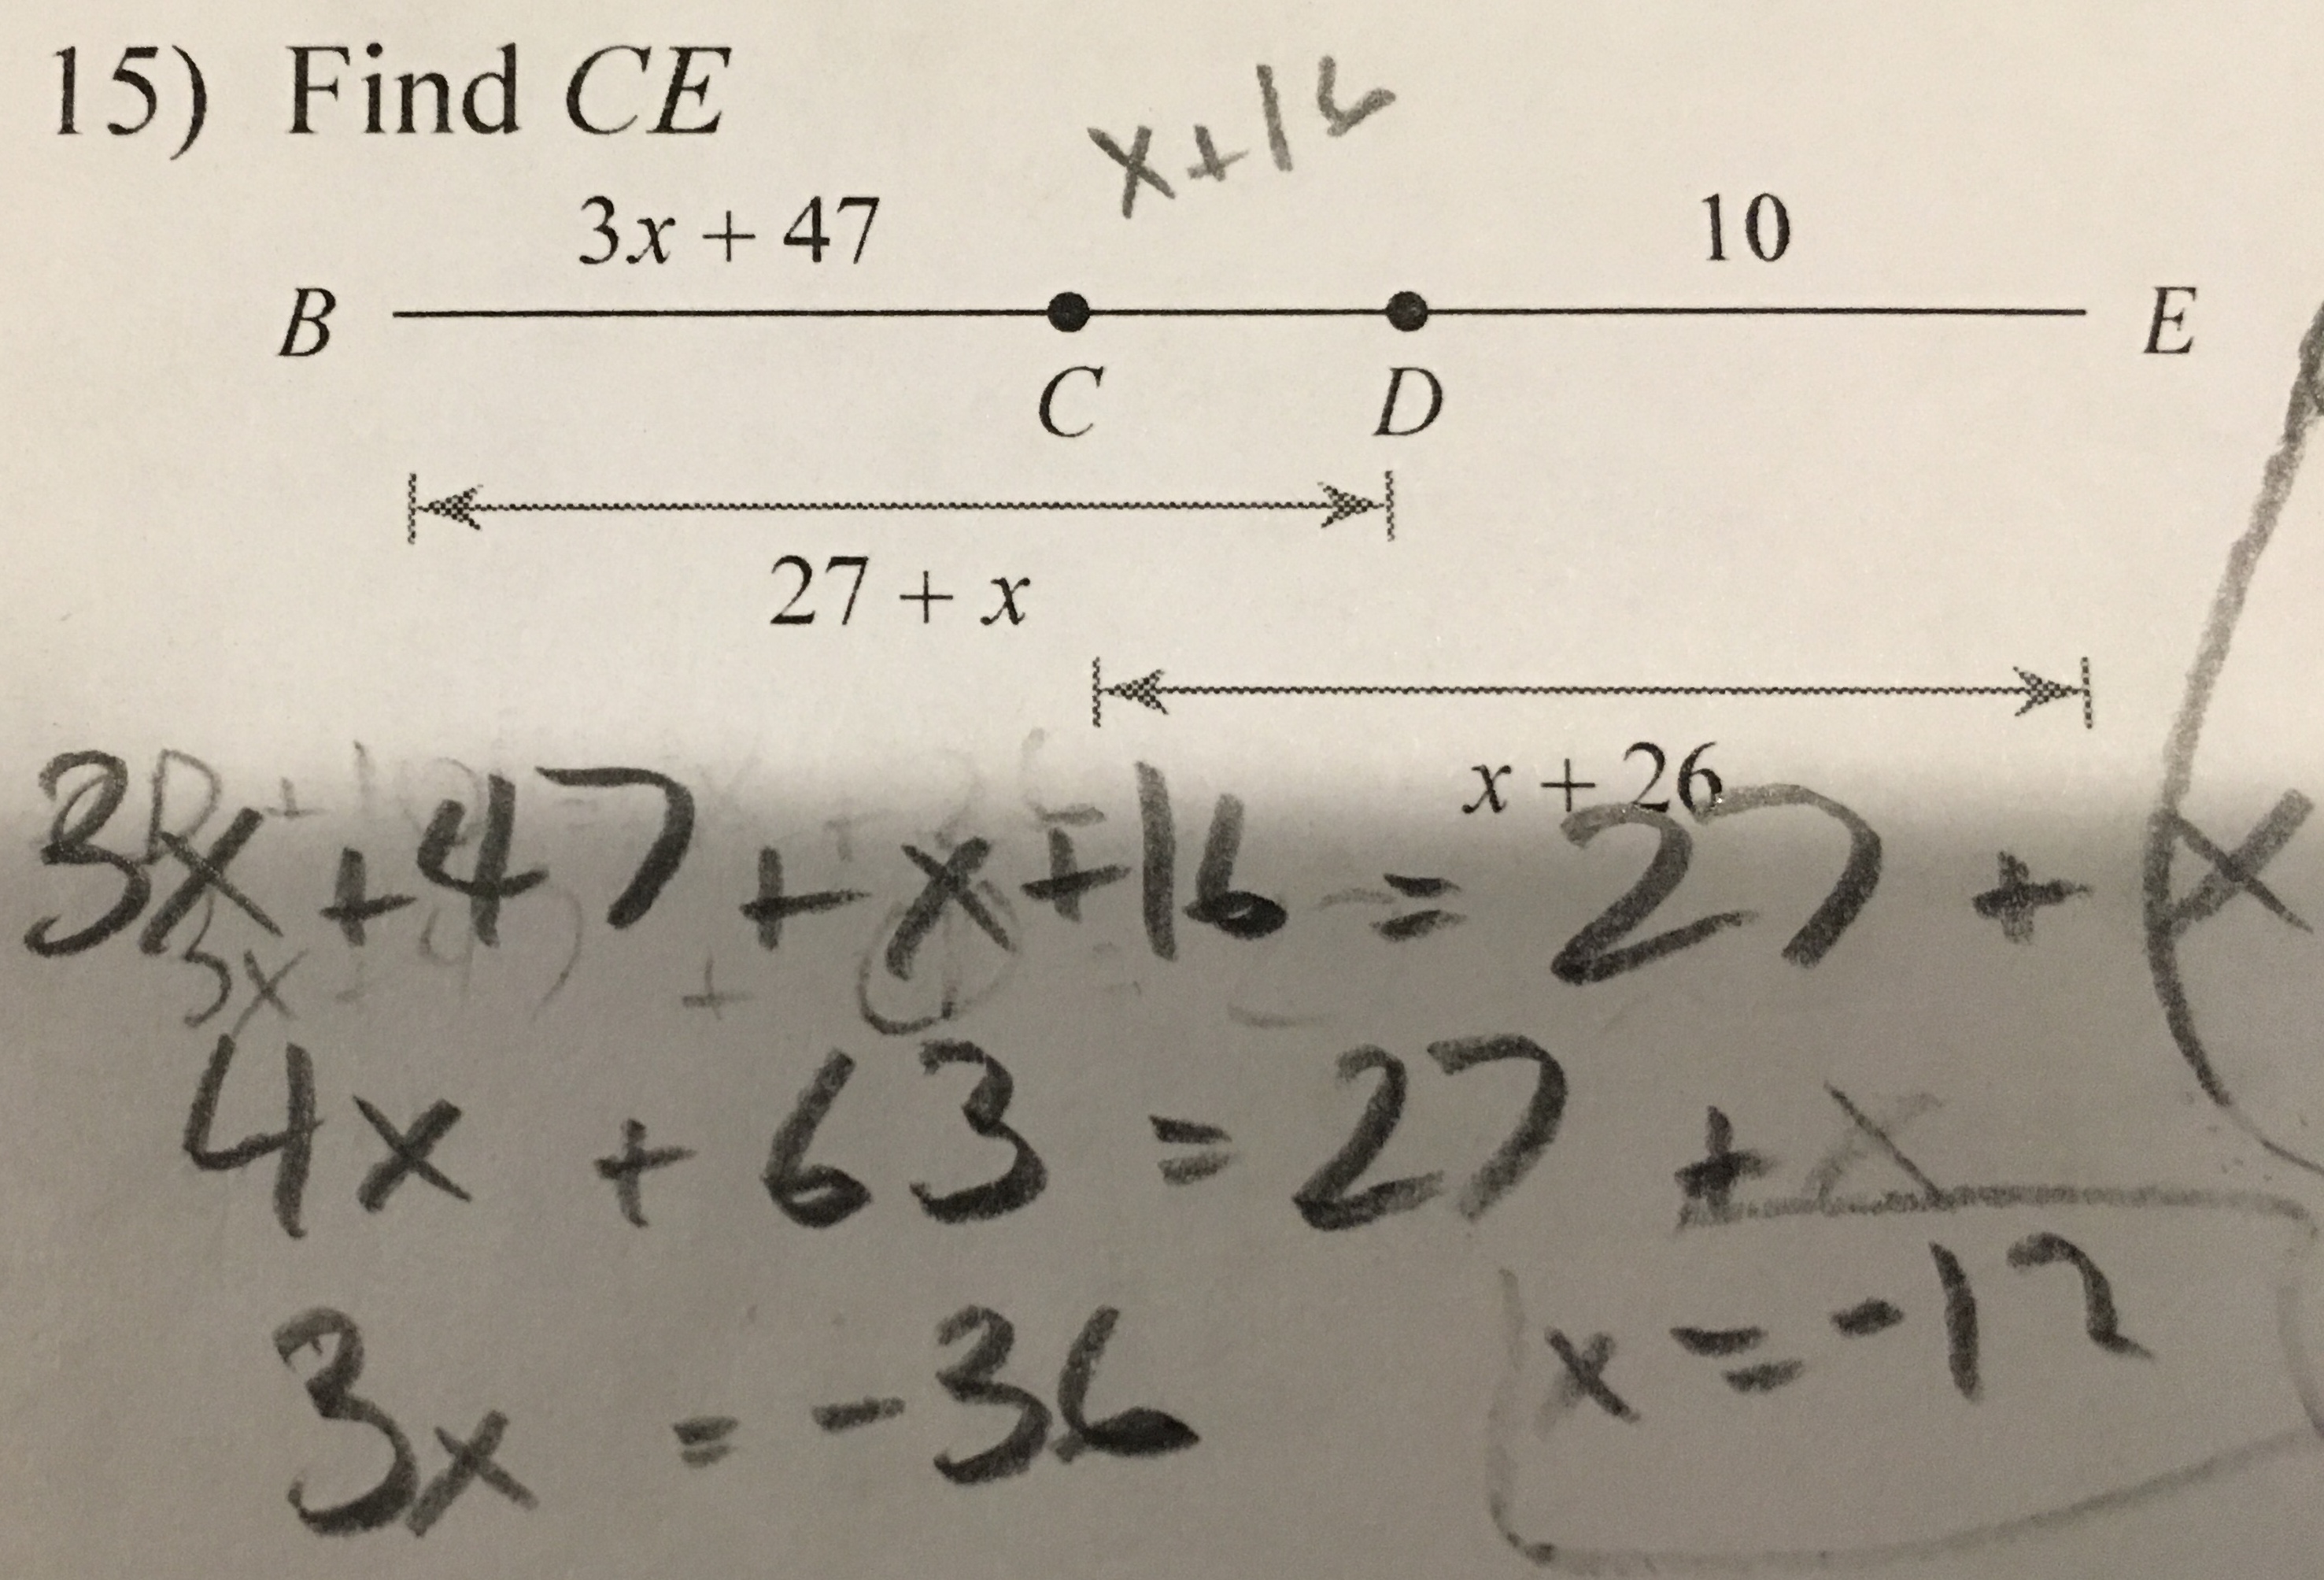 15) Find CE
x+16
3x + 47
10
B
E
C
D
27 + x
x + 26
3x + 47 + x + 16 = 27 + x
3x + 47 +
4x + 63 = 27 + x
3x = -36
x = -12